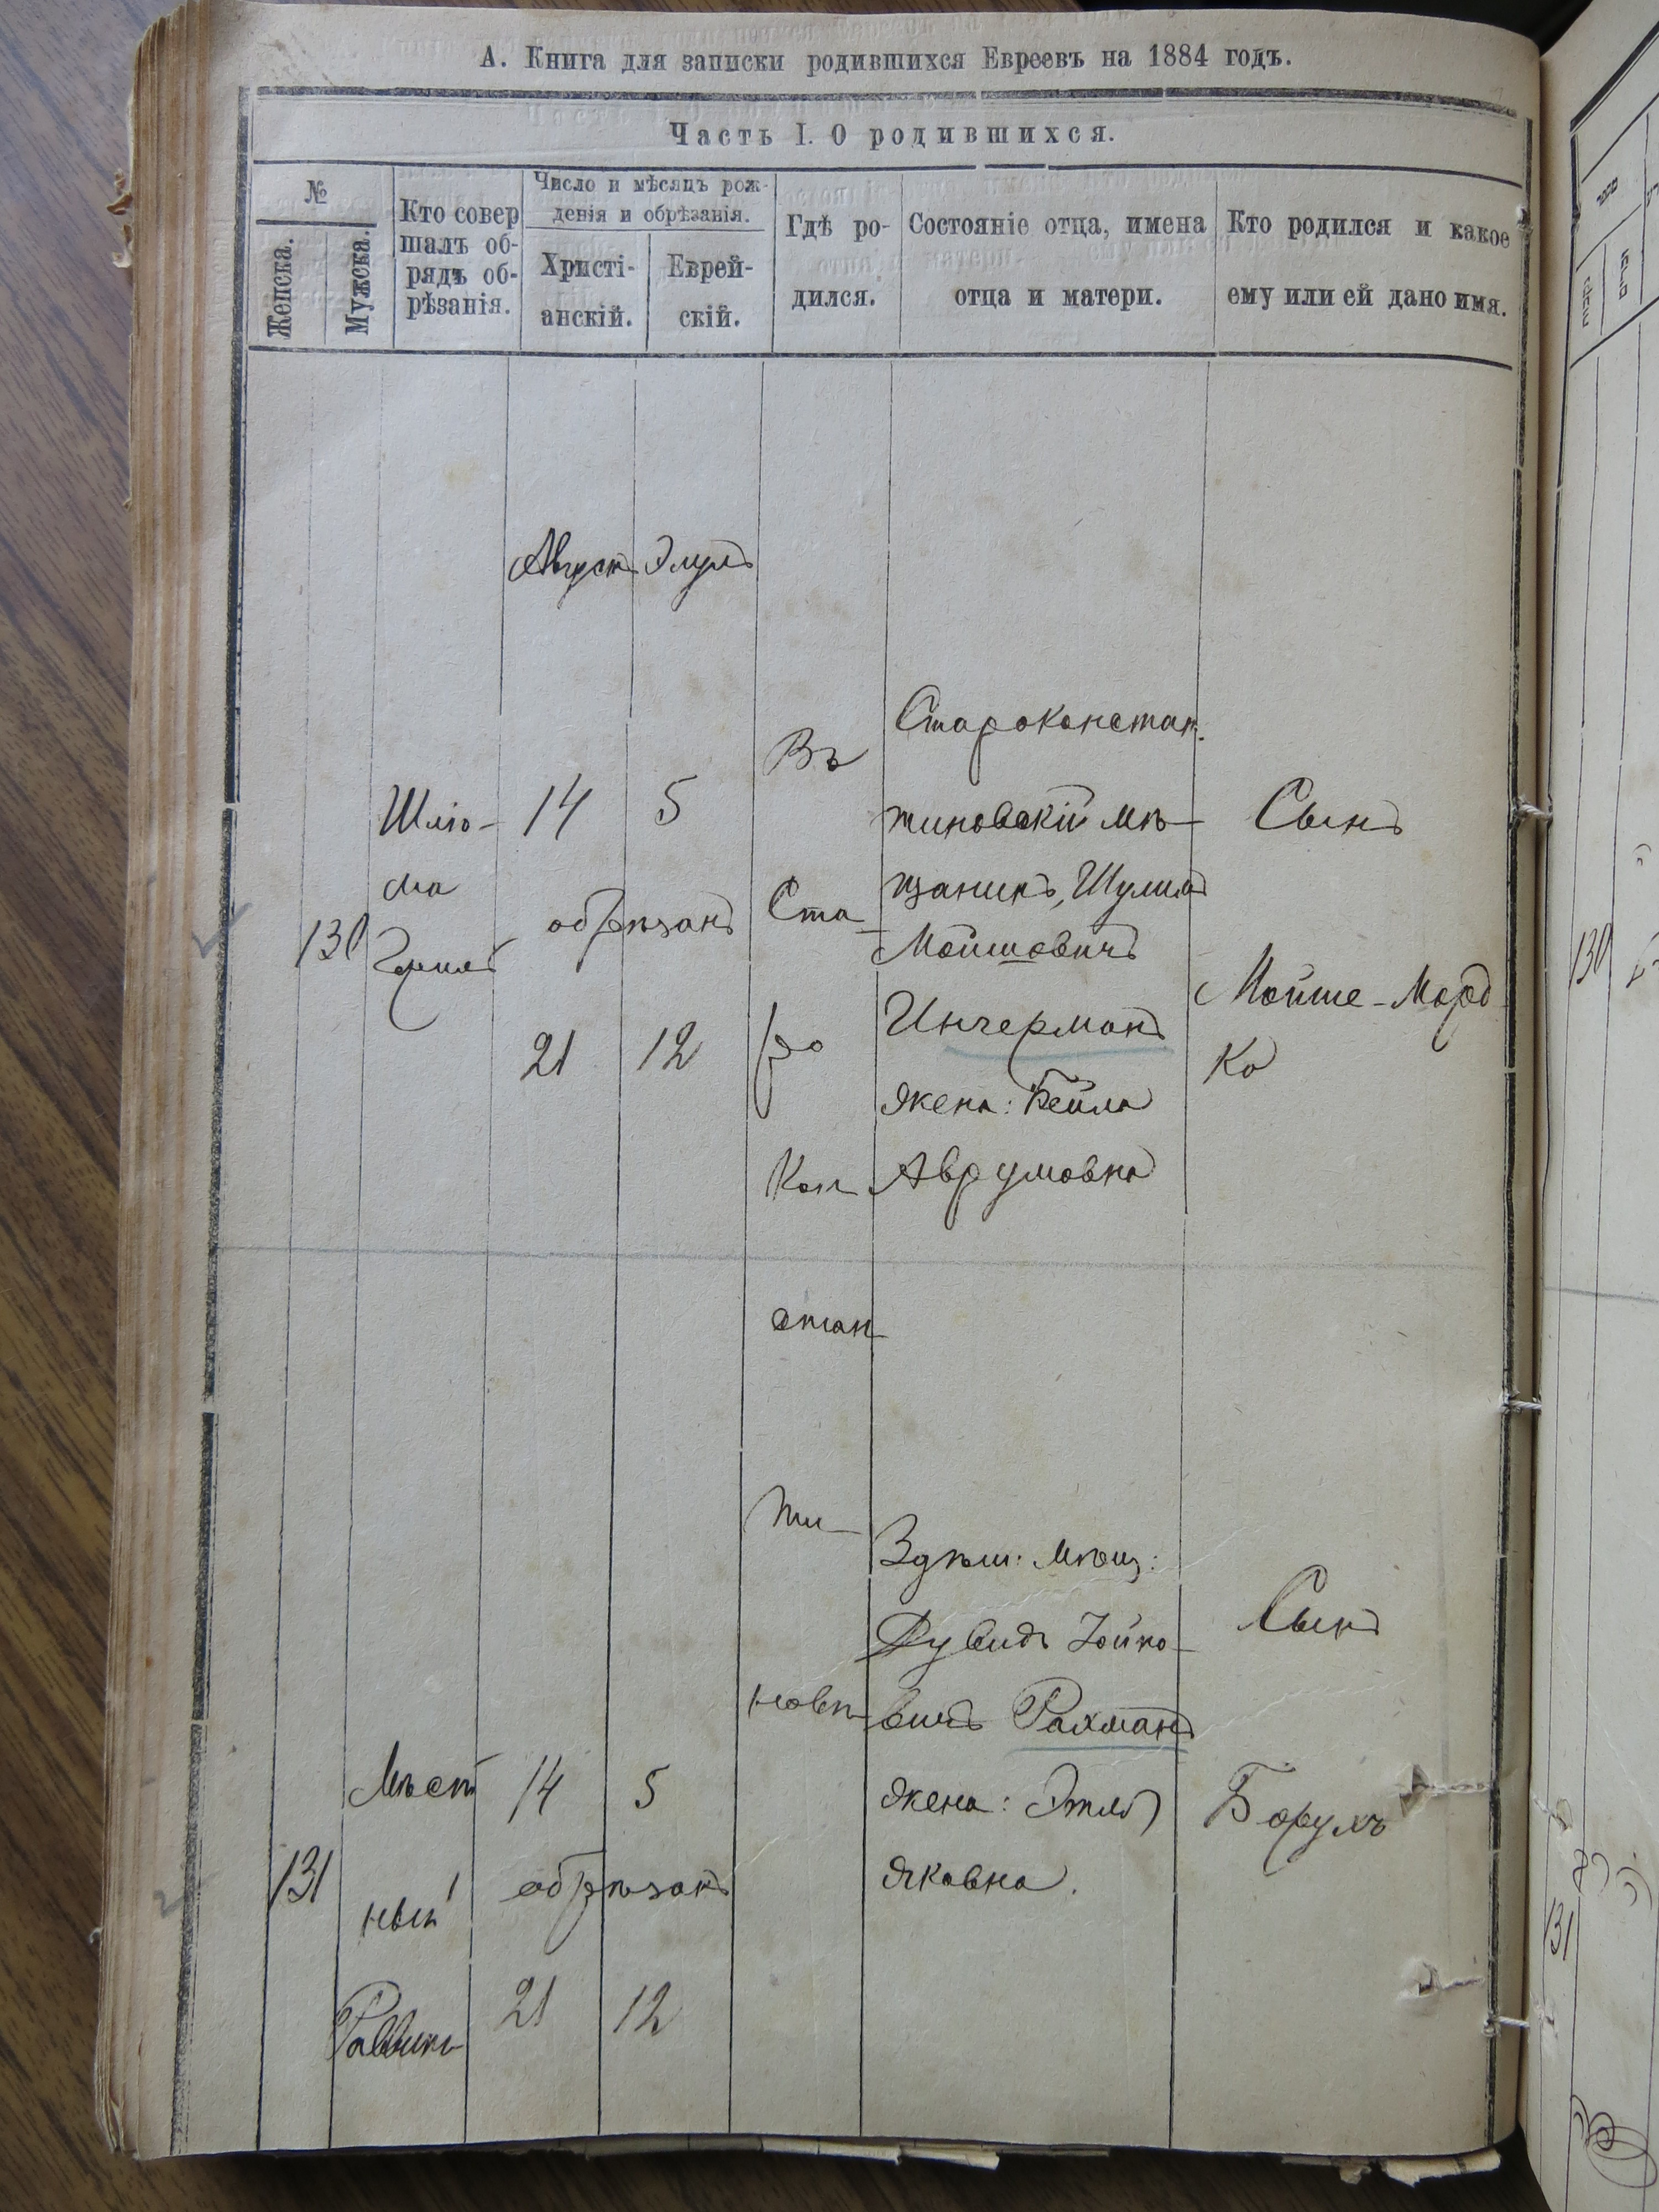 А. Книга для записки родившихся Евреевъ на 1884 годъ.
Часть I. О родившихся.
№
Женска.
Мужска.
Кто совер
шалъ об-
рядъ об-
рѣзанія.
Число и мѣсяцъ рож-
денія и обрѣзанія.
Христі-
анскій.
Еврей-
скій.
Гдѣ ро-
дился.
Состояніе отца, имена
отца и матери.
Кто родился и какое
ему или ей дано имя.
Августъ Элулъ
130
Шлио-
ма
14 5
обрѣзанъ
21 12
Въ
Ста
ро
Кон
стан
ти
новѣ
Староконстан.
тиновскій мѣ-
щанинъ, Шулим
Мойшовичъ
Инчерманъ
жена: Бейла
Аврумовна
Сынъ
Мойше-Морд
ко
131
Мѣст
ный
Раввинъ
14 5
обрѣзанъ
21 12
Здѣш: мѣщ:
Дувидъ
вичъ Рахманъ
жена: Этля
Яковна.
Сынъ
Борухъ
130
131